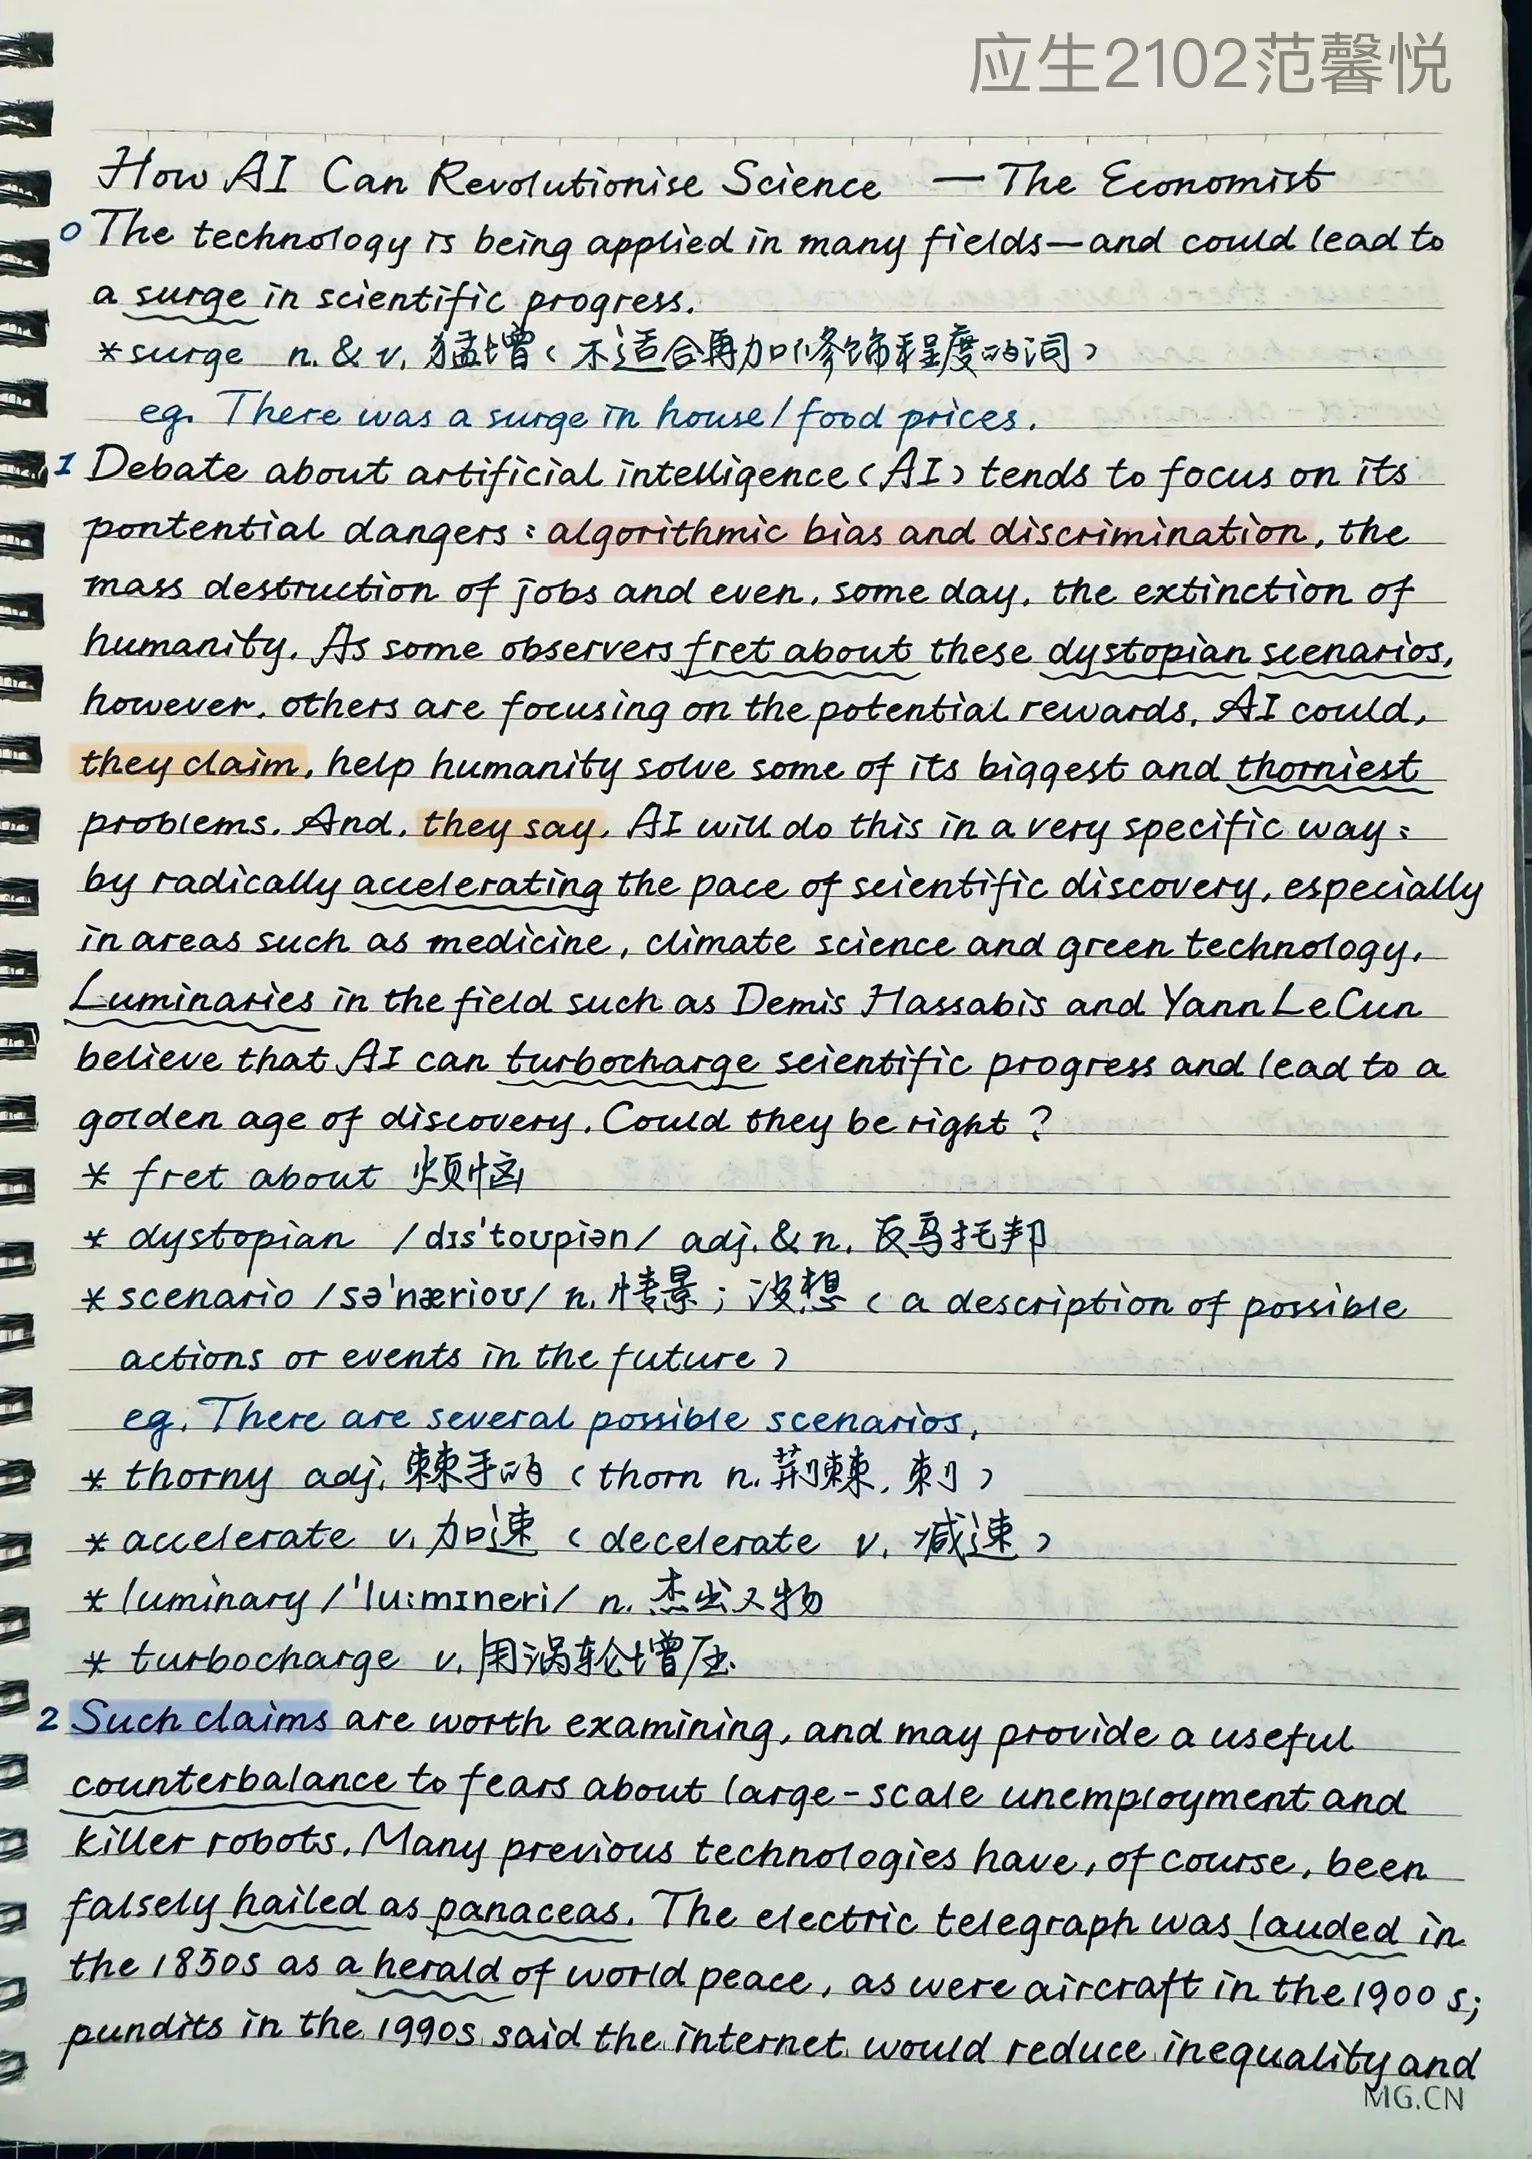 应生2102范馨悦
How AI Can Revolutionise Science — The Economist
0 The technology is being applied in many fields—and could lead to
a surge in scientific progress.
*surge n. & v. 猛增（不适合再加修饰程度的词）
eg. There was a surge in house/food prices.
1 Debate about artificial intelligence (AI) tends to focus on its
pontential dangers: algorithmic bias and discrimination, the
mass destruction of jobs and even, some day, the extinction of
humanity. As some observers fret about these dystopian scenarios,
however, others are focusing on the potential rewards. AI could,
they claim, help humanity solve some of its biggest and thorniest
problems. And, they say, AI will do this in a very specific way:
by radically accelerating the pace of scientific discovery, especially
in areas such as medicine, climate science and green technology.
Luminaries in the field such as Demis Hassabis and Yann LeCun
believe that AI can turbocharge scientific progress and lead to a
golden age of discovery. Could they be right?
* fret about 烦恼
* dystopian /dɪs'toʊpiən/ adj. & n. 反乌托邦
* scenario /sə'nærioʊ/ n. 情景；设想（a description of possible
actions or events in the future）
eg. There are several possible scenarios.
* thorny adj. 棘手的（thorn n. 荆棘，刺）
* accelerate v. 加速（decelerate v. 减速）
* luminary /'lu:mɪneri/ n. 杰出人物
* turbocharge v. 用涡轮增压.
2 Such claims are worth examining, and may provide a useful
counterbalance to fears about large-scale unemployment and
killer robots. Many previous technologies have, of course, been
falsely hailed as panaceas. The electric telegraph was lauded in
the 1850s as a herald of world peace, as were aircraft in the 1900s;
pundits in the 1990s said the internet would reduce inequality and
MG.CN